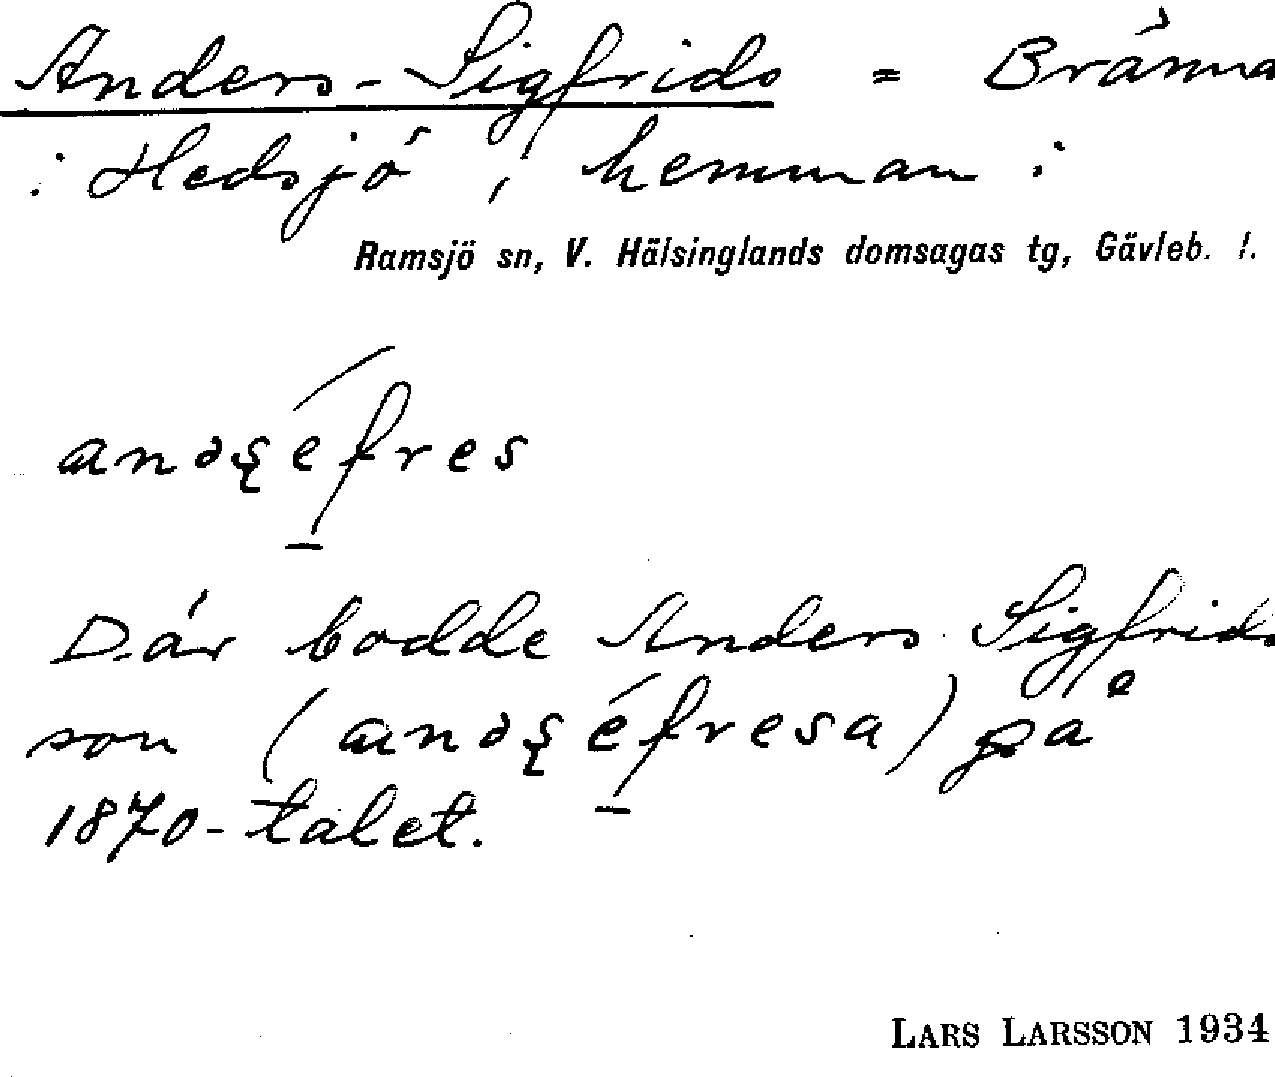 Anders-Sigfrids = Bränna
i Hedsjö, hemman i
Ramsjö sn, V. Hälsinglands domsagas tg, Gävleb. l.
andʂéfres
Där bodde Anders Sigfrids
son (andʂéfresa) på
1870-talet.
LARS LARSSON 1934